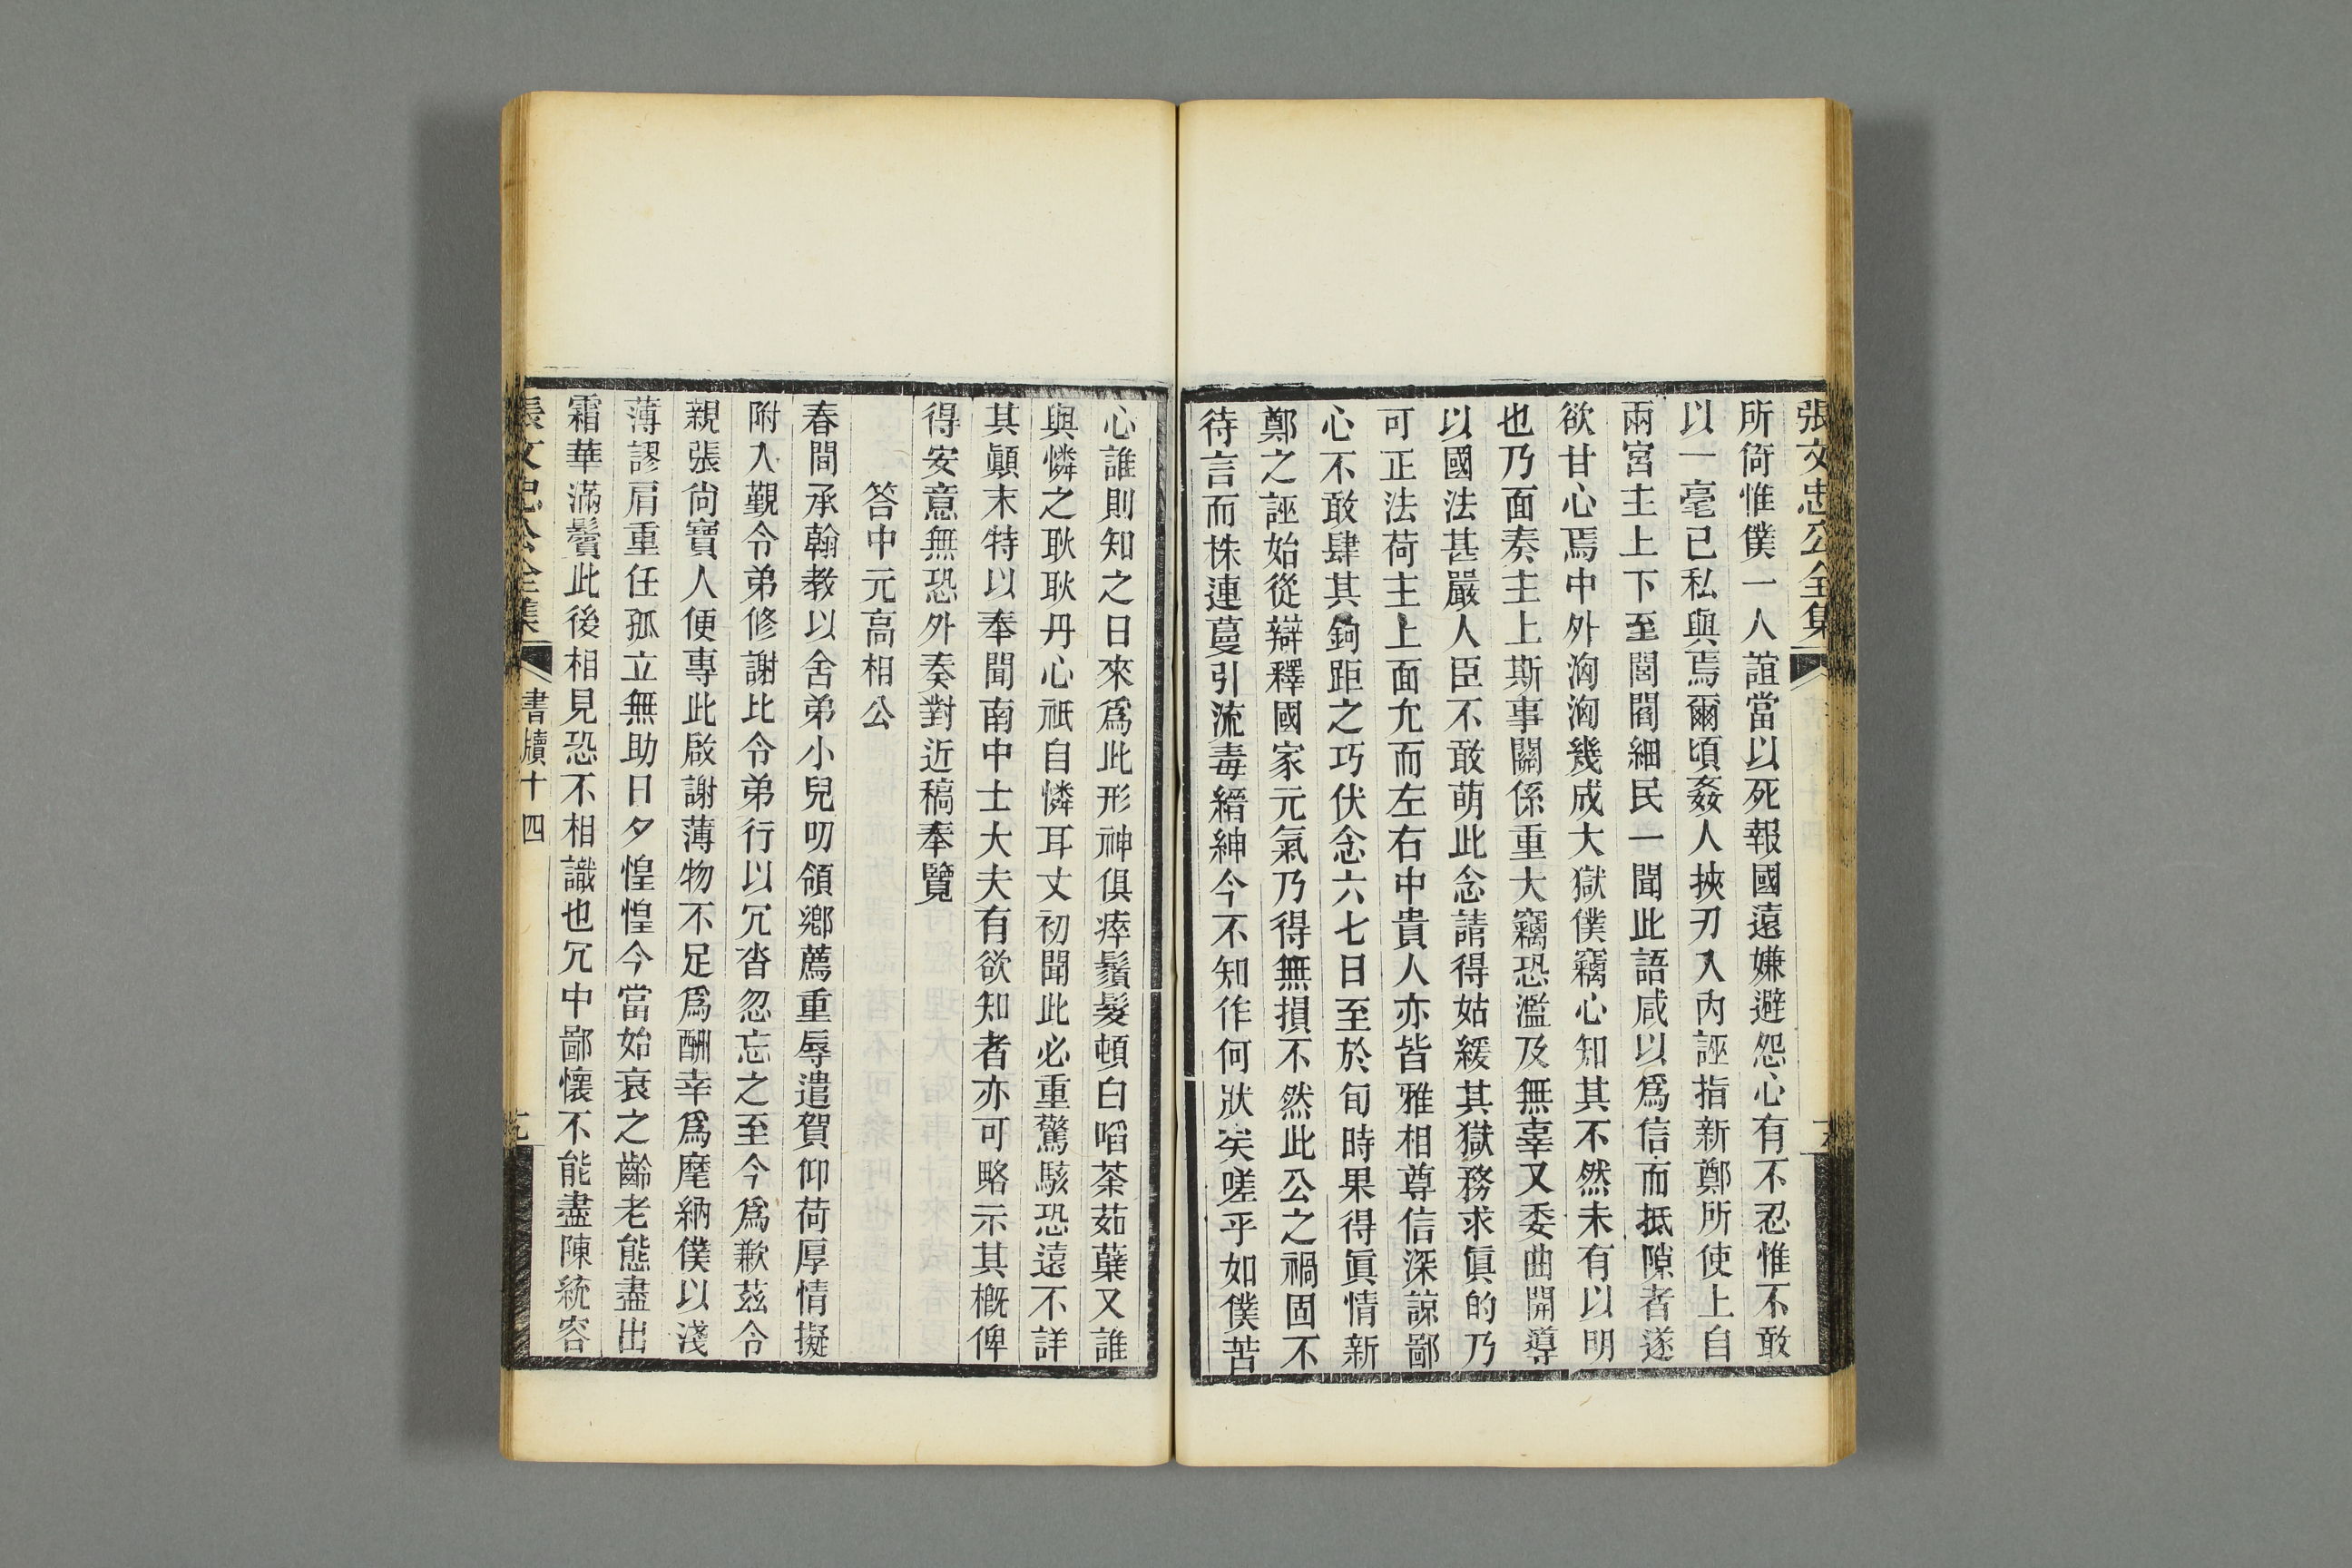 張文忠公全集
所倚惟僕一人誼當以死報國遠嫌避怨心有不忍惟不敢
以一毫已私與焉爾頃姦人挾刃入內誣指新鄭所使上自
兩宮主上下至閭閻細民一聞此語咸以爲信而抵隙者遂
欲甘心焉中外洶洶幾成大獄僕竊心知其不然未有以明
也乃面奏主上斯事關係重大竊恐濫及無辜又委曲開導
以國法甚嚴人臣不敢萌此念請得姑緩其獄務求眞的乃
可正法荷主上面允而左右中貴人亦皆雅相尊信深諒鄙
心不敢肆其鉤距之巧伏念六七日至於旬時果得眞情新
鄭之誣始從辯釋國家元氣乃得無損不然此公之禍固不
待言而株連蔓引流毒縉紳今不知作何狀矣嗟乎如僕苦
心誰則知之日來爲此形神俱瘁鬚髮頓白啗荼茹蘗又誰
與憐之耿耿丹心祇自憐耳丈初聞此必重驚駭恐遠不詳
其顚末特以奉聞南中士大夫有欲知者亦可略示其槪俾
得安意無恐外奏對近稿奉覽
答中元高相公
春間承翰教以舍弟小兒叨領鄕薦重辱遣賀仰荷厚情擬
附入覲令弟修謝比令弟行以冗沓忽忘之至今爲歉茲令
親張尙寶人便專此啟謝薄物不足爲酬幸爲麾納僕以淺
薄謬肩重任孤立無助日夕惶惶今當始衰之齡老態盡出
霜華滿鬢此後相見恐不相識也冗中鄙懷不能盡陳統容
張文忠公全集 書牘十四